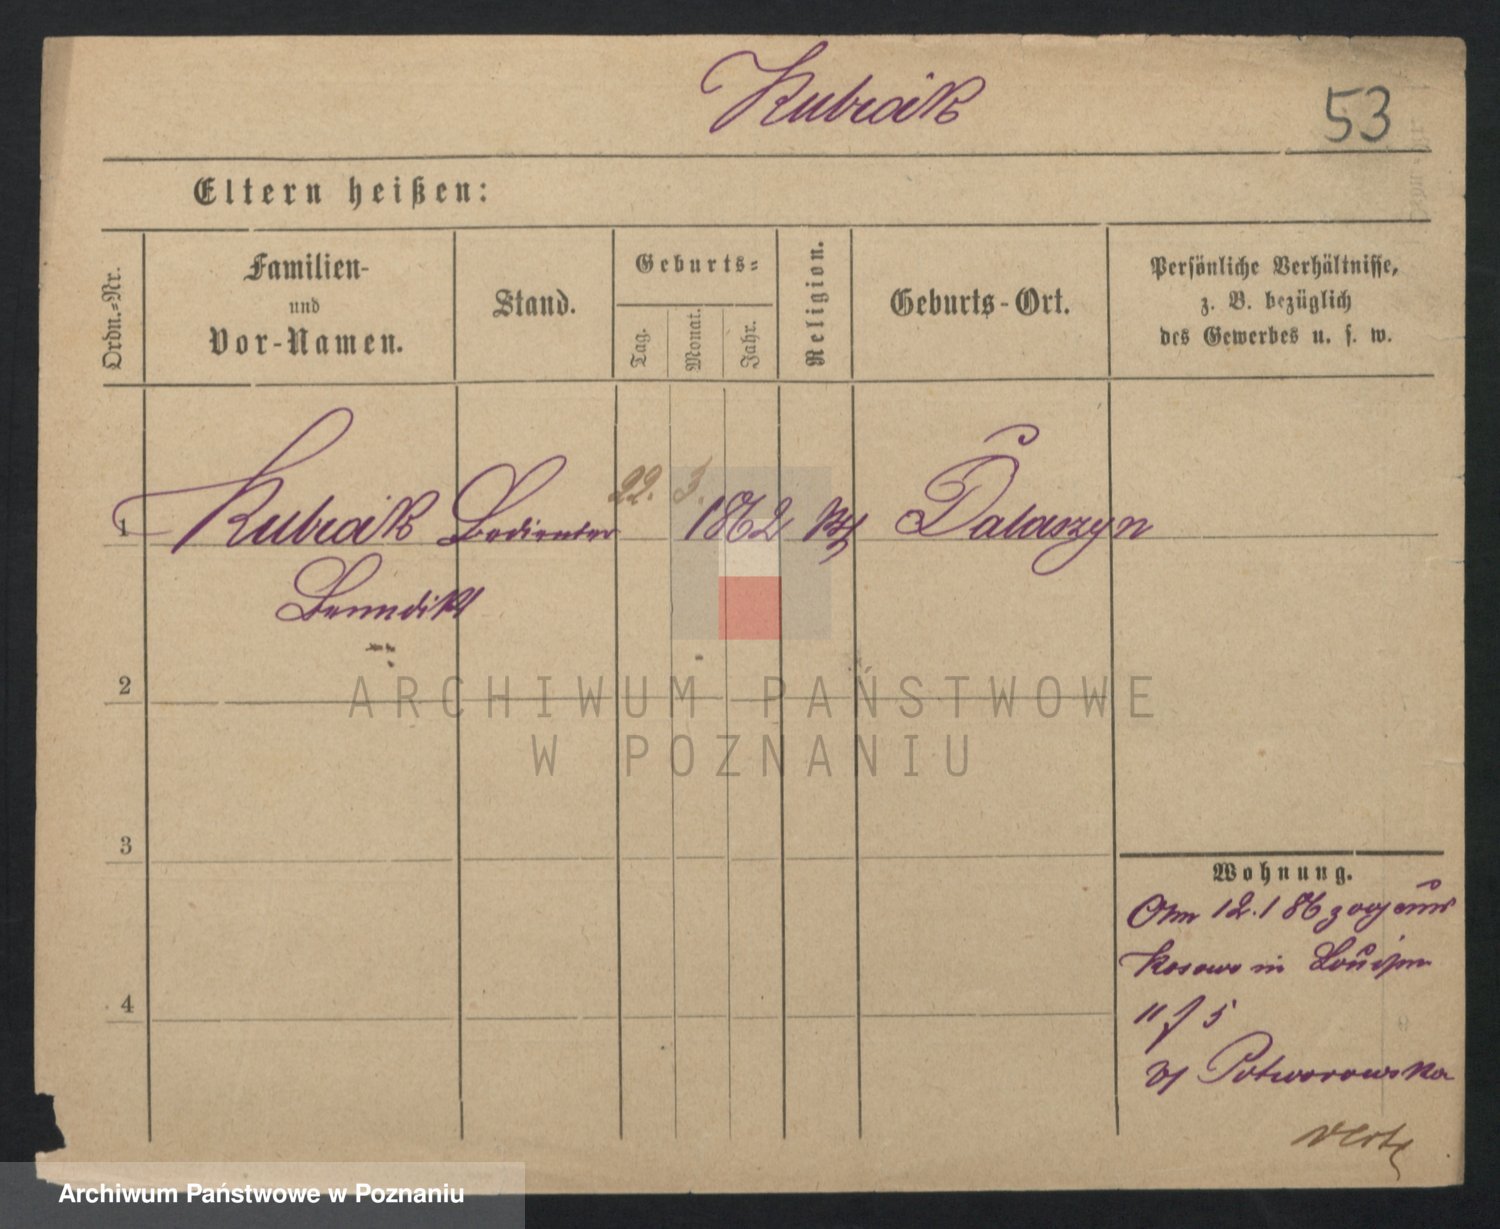 Kubiak
53
Eltern heißen:
Ordn.-Nr.
Familien-
und
Vor-Namen.
Stand.
Geburts-
Tag.
Monat.
Jahr.
Religion.
Geburts-Ort.
Persönliche Verhältnisse,
z. B. bezüglich
des Gewerbes u. s. w.
1
Kubiak Bedienter 22. 3. 1862
Benedikt
2
3
4
Wohnung.
12.1 86 zog aus
Kosowo in Louisen
11 f 5
Potworowska
ARCHIWUM PAŃSTWOWE
W POZNANIU
Archiwum Państwowe w Poznaniu